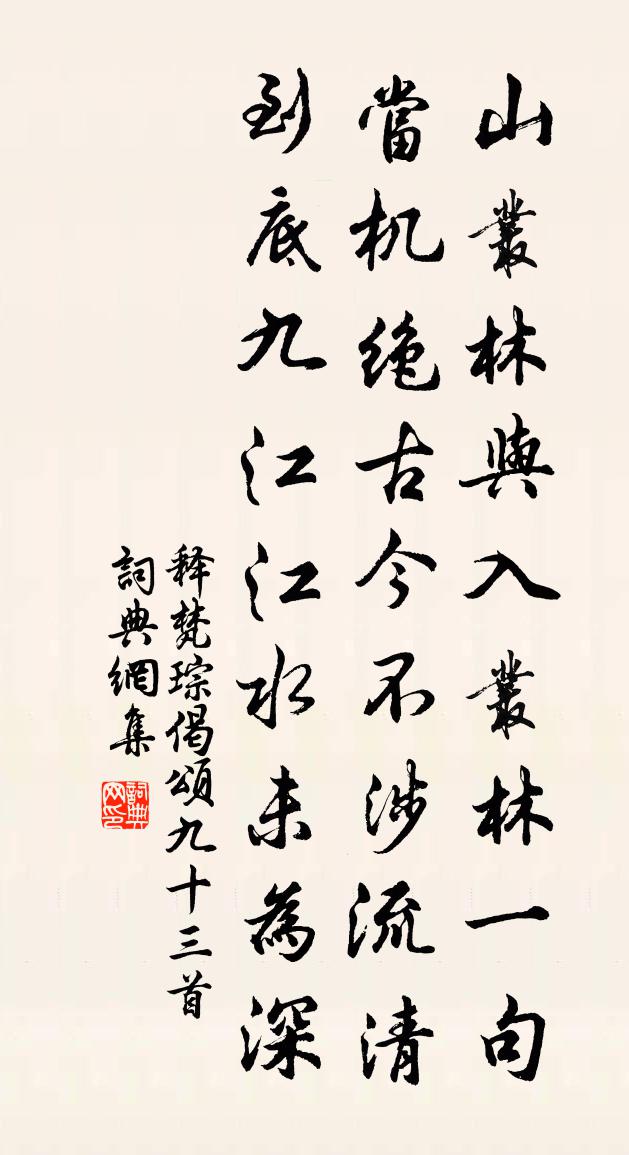 山叢林與入叢林一句
當机絶古今不涉流清
到底九江江水未為深
释梵琮偈頌九十三首
詞典網集
詞典
网印